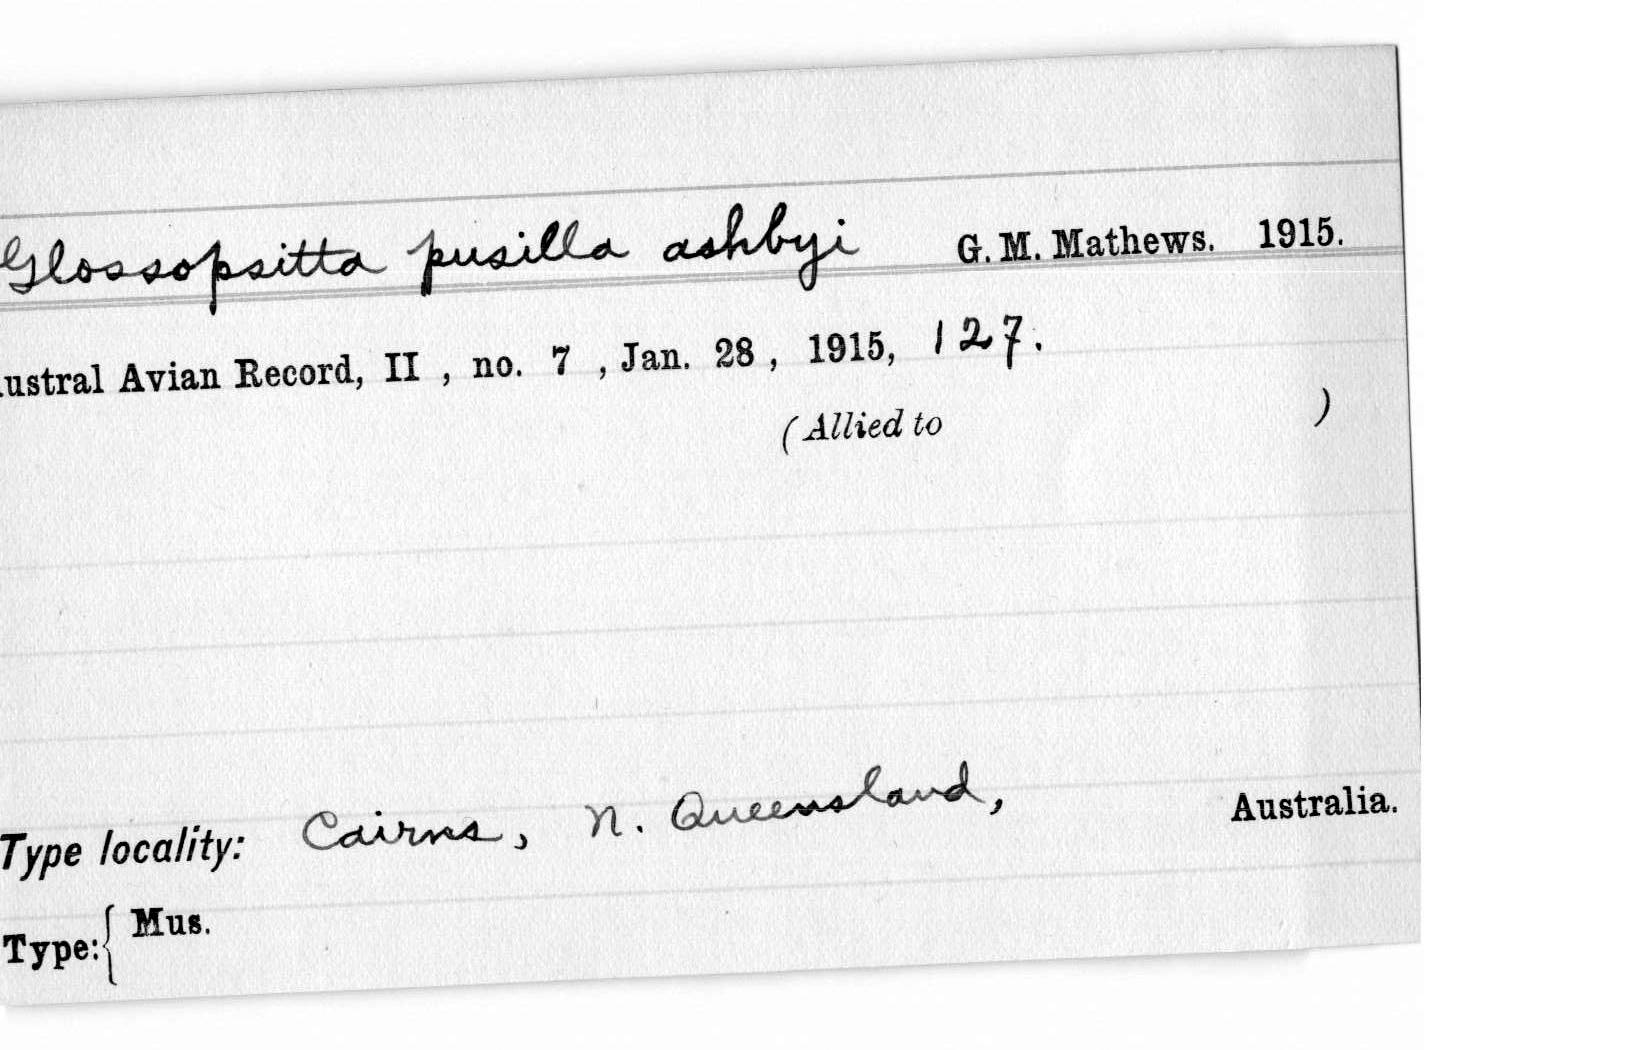 Glossopsitta pusilla ashbyi G. M. Mathews. 1915.
ustral Avian Record, II , no. 7 , Jan. 28 , 1915, 127.
(Allied to )
Type locality: Cairns, N. Queensland, Australia.
Type: { Mus.